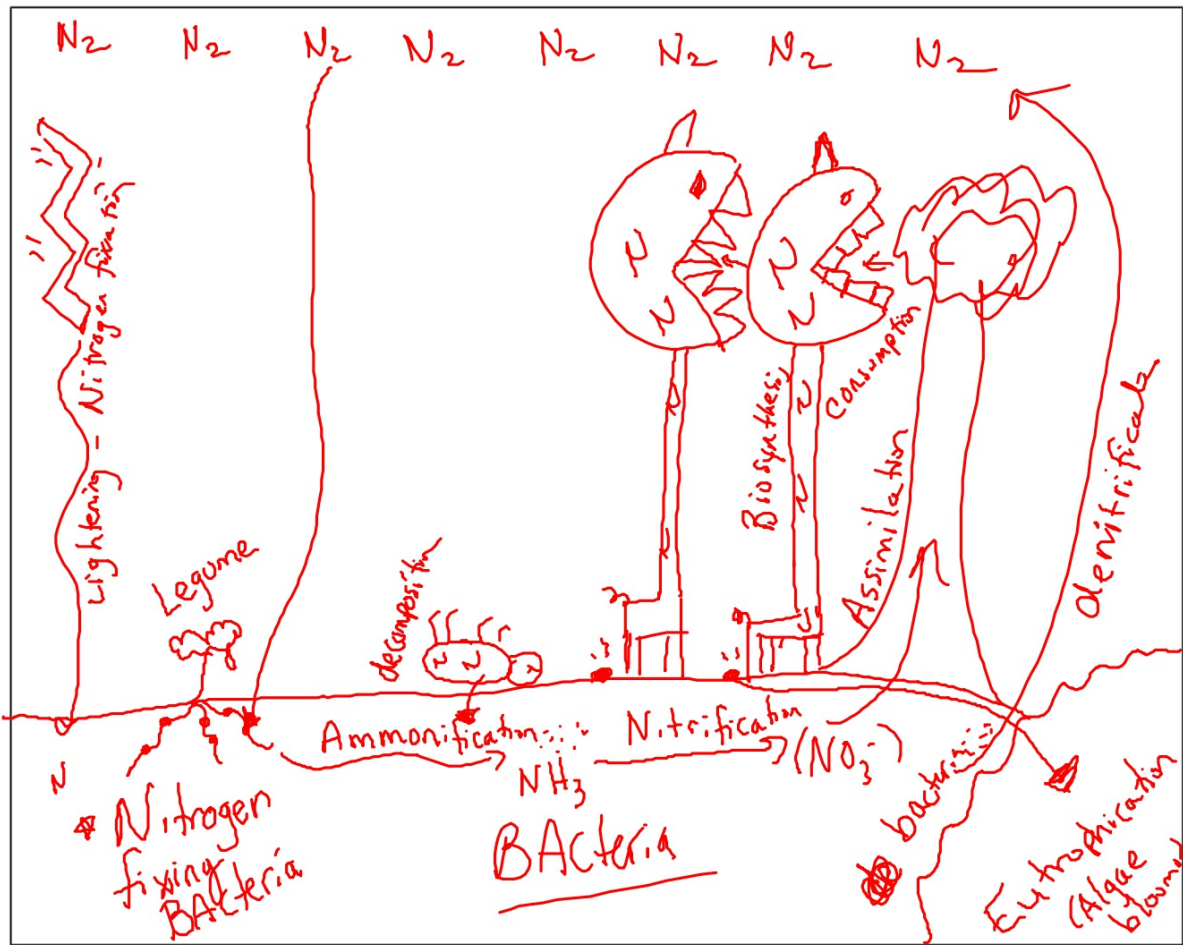 N₂ N₂ N₂ N₂ N₂ N₂ N₂ N₂
Lightening - Nitrogen fixation
Legume
decomposition
N N
N N
N
N
N
N N
N
N
Biosynthesis
Consumption
Assimilation
denitrificat
N
Ammonification
NH₃
Nitrification
(NO₃⁻)
* Nitrogen
fixing
BActeria
BActeria
bacteria
Eutrophication
(Algae